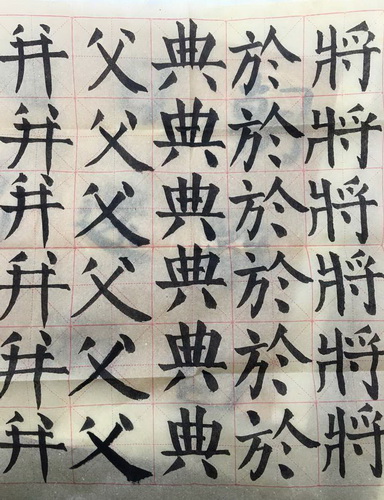 將將將將將將
於於於於於於
典典典典典典
父父父父父父
并并并并并并